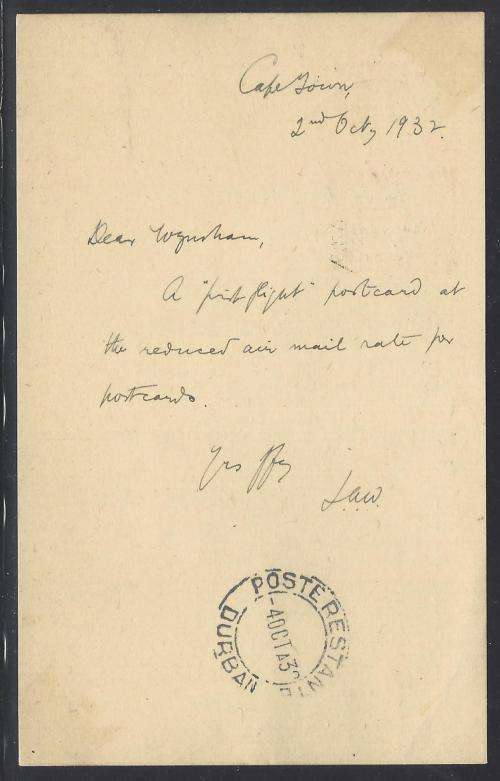 Cape Town,
2nd Oct, 1932.
Dear Wyndham,
A "first flight" postcard at
the reduced air mail rate for
postcards.
Yrs
L.A.W.
POSTE RESTANT
-4 OCT 32
DURBAN